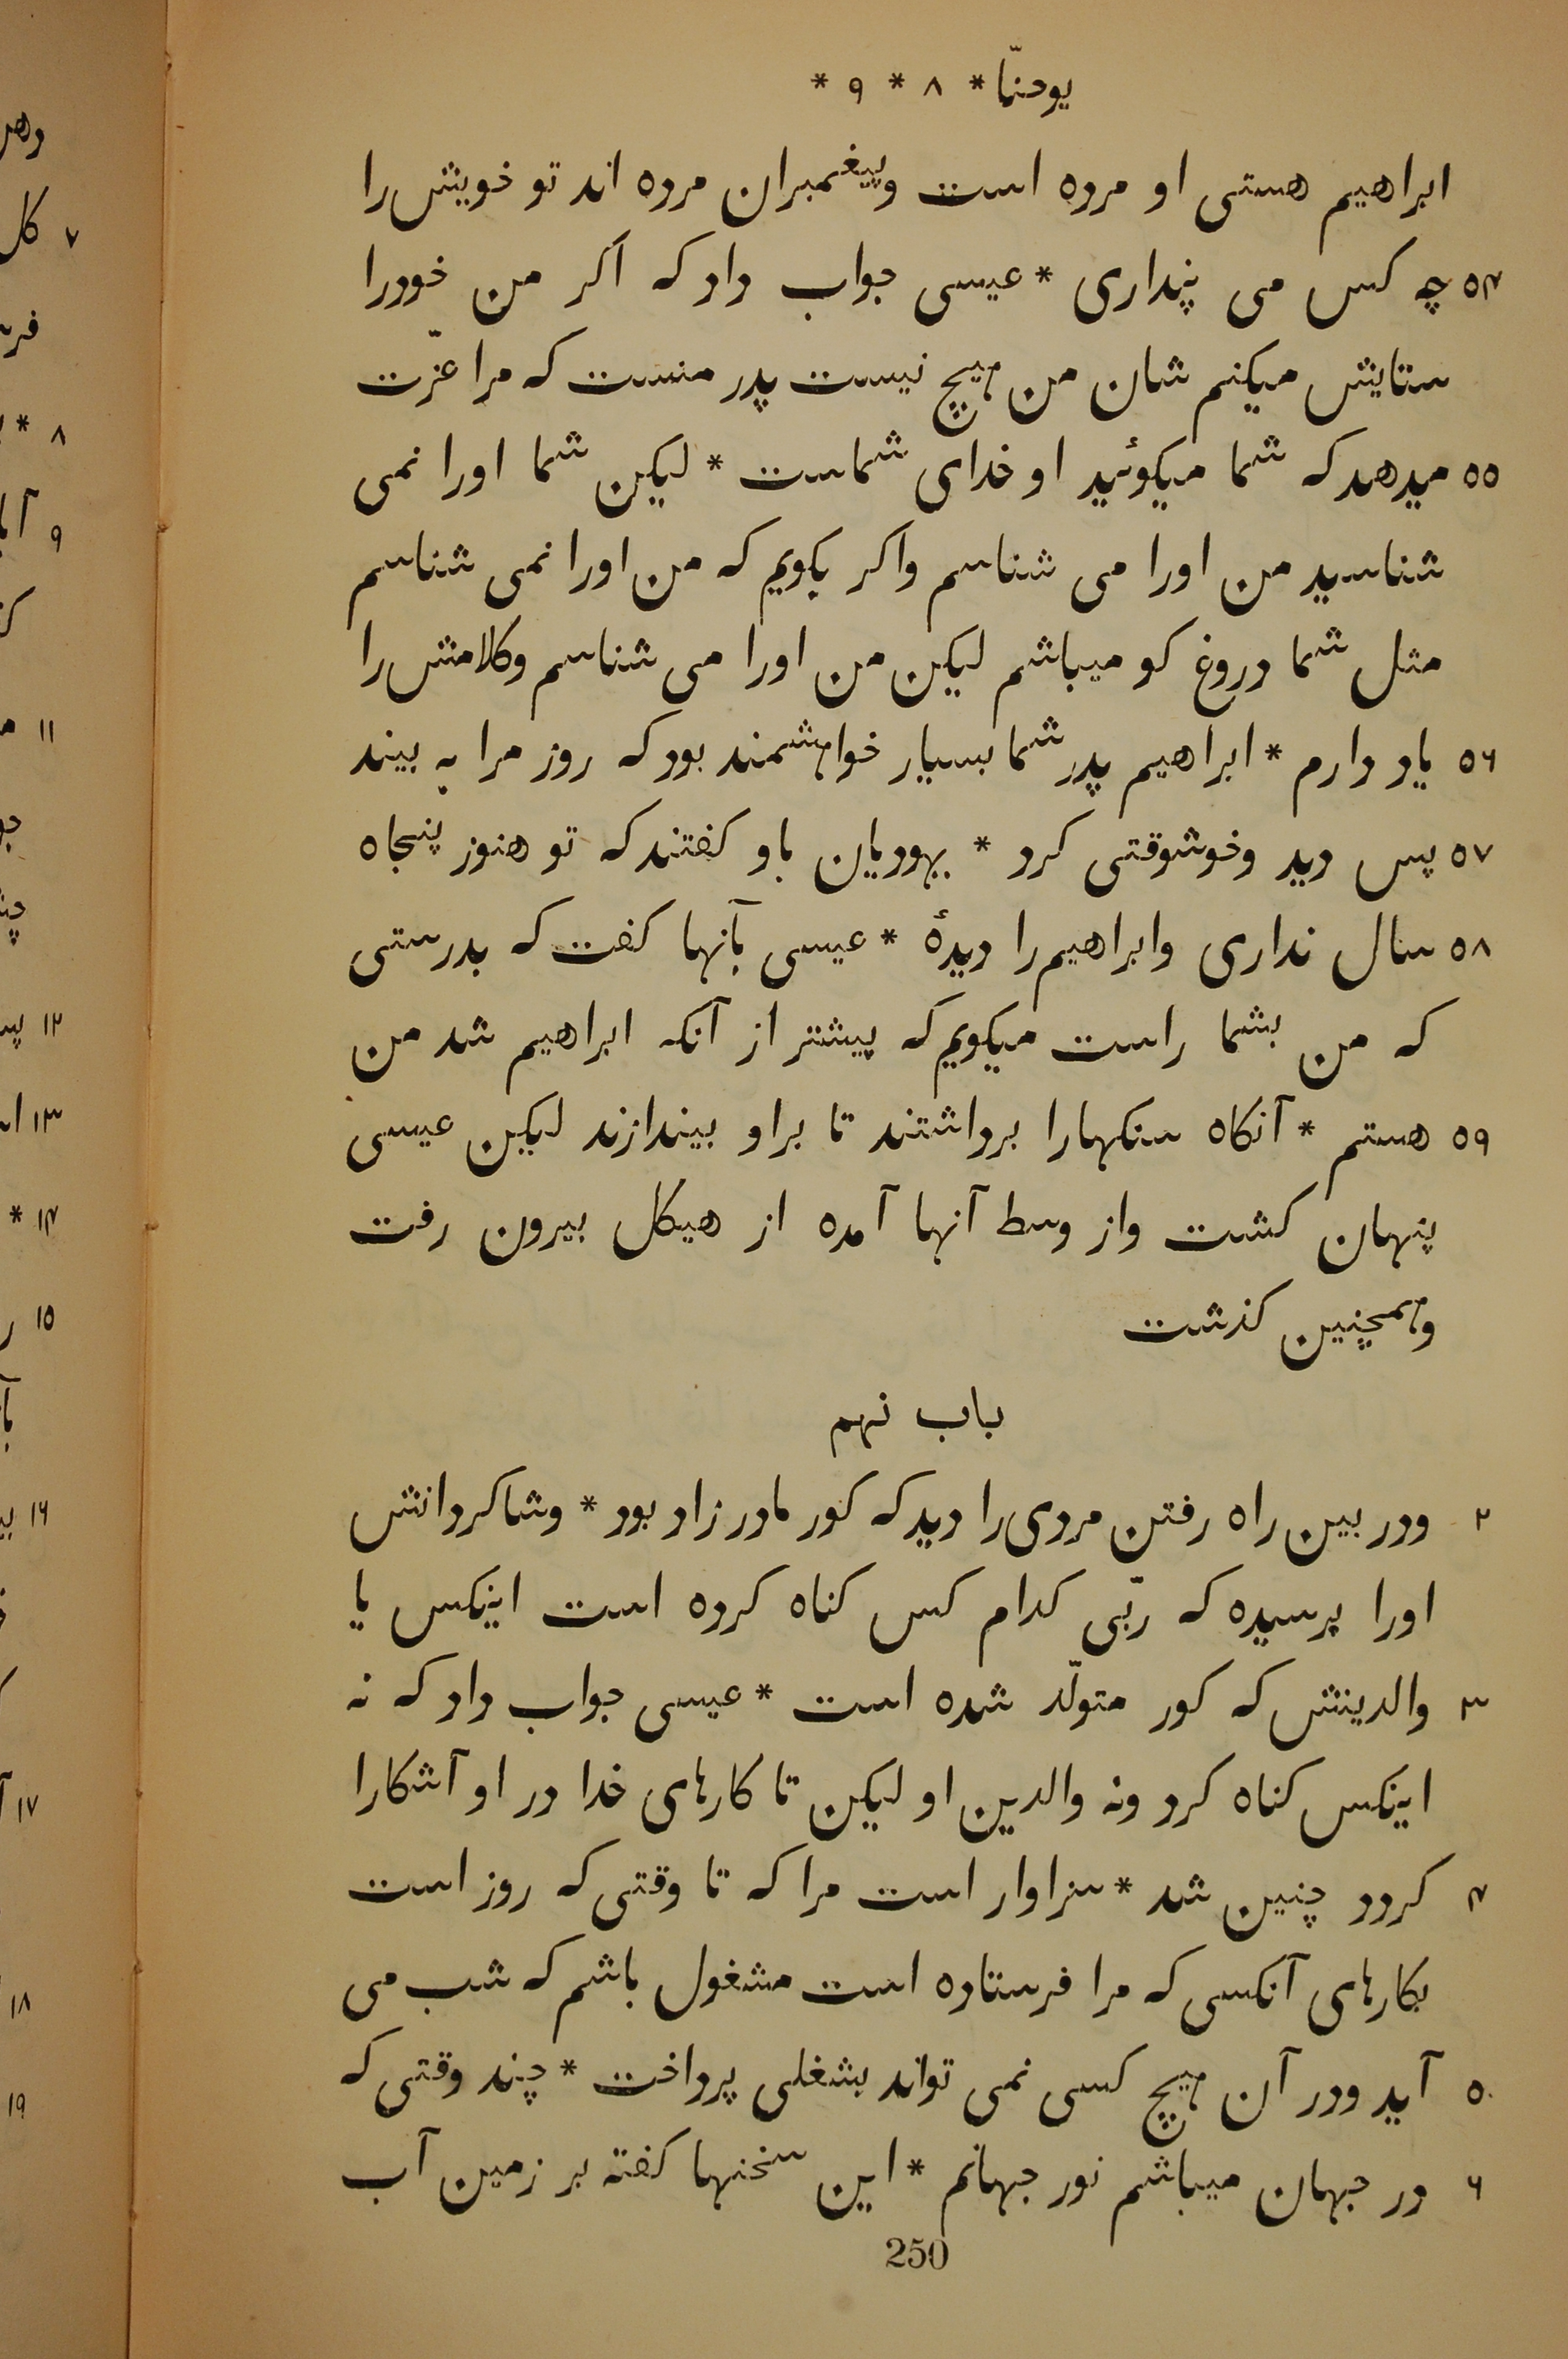 یوحنّا * ۸ * ۹ *
ابراهیم هستی او مرده است وپیغمبران مرده اند تو خویش را
۵۴ چه کس می پنداری * عیسی جواب داد که اکر من خودرا
ستایش میکنم شان من هیچ نیست پدر منست که مرا عزّت
۵۵ میدهد که شما میکوئید او خدای شماست * لیکن شما اورا نمی
شناسید من اورا می شناسم واکر بکویم که من اورا نمی شناسم
مثل شما دروغ کو میباشم لیکن من اورا می شناسم وکلامش را
۵۶ یاد دارم * ابراهیم پدر شما بسیار خواهشمند بود که روز مرا به بیند
۵۷ پس دید وخوشوقتی کرد * یهودیان باو کفتند که تو هنوز پنجاه
۵۸ سال نداری وابراهیم را دیدهٔ * عیسی بآنها کفت که بدرستی
که من بشما راست میکویم که پیشتر از آنکه ابراهیم شد من
۵۹ هستم * آنکاه سنکهارا برداشتند تا براو بیندازند لیکن عیسی
پنهان کشت واز وسط آنها آمده از هیکل بیرون رفت
وهمچنین کذشت
باب نهم
۲ ودر بین راه رفتن مردی را دید که کور مادر زاد بود * وشاکردانش
اورا پرسیده که ربّی کدام کس کناه کرده است اینکس یا
۳ والدینش که کور متولّد شده است * عیسی جواب داد که نه
اینکس کناه کرد ونه والدین او لیکن تا کارهای خدا در او آشکارا
۴ کردد چنین شد * سزاوار است مرا که تا وقتی که روز است
بکارهای آنکسی که مرا فرستاده است مشغول باشم که شب می
۵ آید ودر آن هیچ کسی نمی تواند بشغلی پرداخت * چند وقتی که
۶ در جهان میباشم نور جهانم * این سخنها کفته بر زمین آب
250